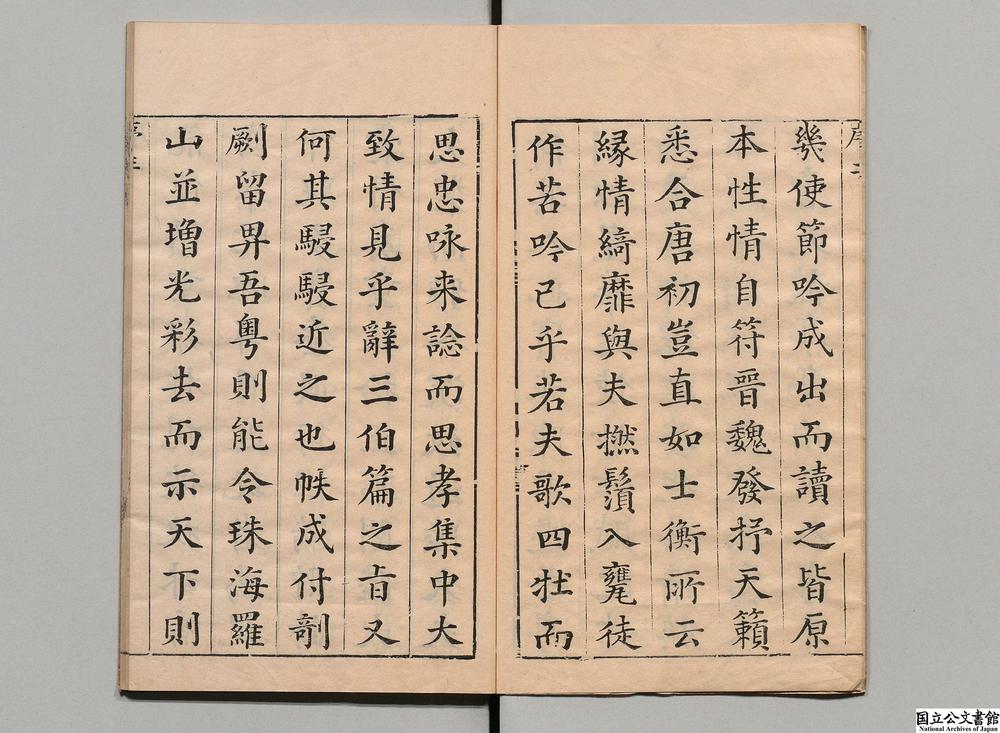 幾使節吟成出而讀之皆原
本性情自符晋魏發抒天籟
悉合唐初豈直如士衡所云
緣情綺靡與夫撚鬚入甕徒
作苦吟已乎若夫歌四牡而
思忠咏来諗而思孝集中大
致情見乎辭三伯篇之旨又
何其駸駸近之也帙成付剞
劂留畀吾粤則能令珠海羅
山並增光彩去而示天下則
国立公文書館
National Archives of Japan